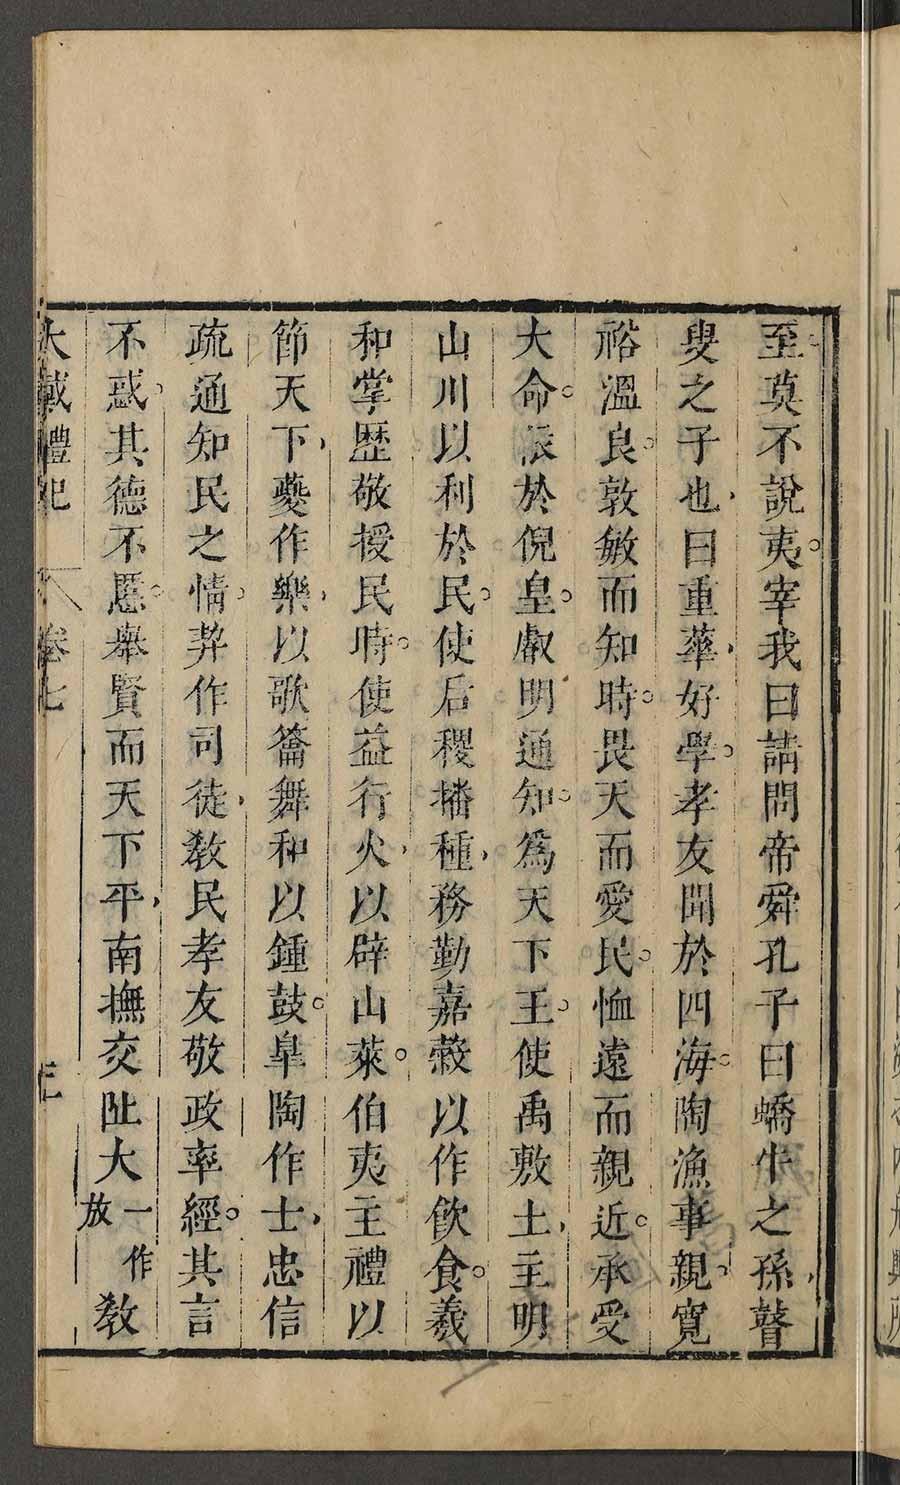 至莫不說夷宰我曰請問帝舜孔子曰蟜牛之孫瞽
叟之子也曰重華好學孝友聞於四海陶漁事親寬
裕溫良敦敏而知時畏天而愛民恤遠而親近承受
大命依於倪皇叡明通知為天下王使禹敷土主明
山川以利於民使后稷播種務勤嘉穀以作飲食羲
和掌歷敬授民時使益行火以辟山萊伯夷主禮以
節天下夔作樂以歌籥舞和以鍾鼓皐陶作士忠信
疏通知民之情契作司徒敎民孝友敬政率經其言
不惑其德不慝舉賢而天下平南撫交阯大一作放敎
大戴禮記 卷七